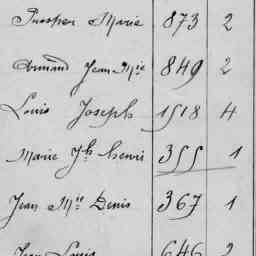 Prosper Marie 873 2
Armand Jean Mie 849 2
Louis Joseph 1518 4
Marie Jh henri 355 1
Jean Mie Denis 367 1
Jean Louis 646 2